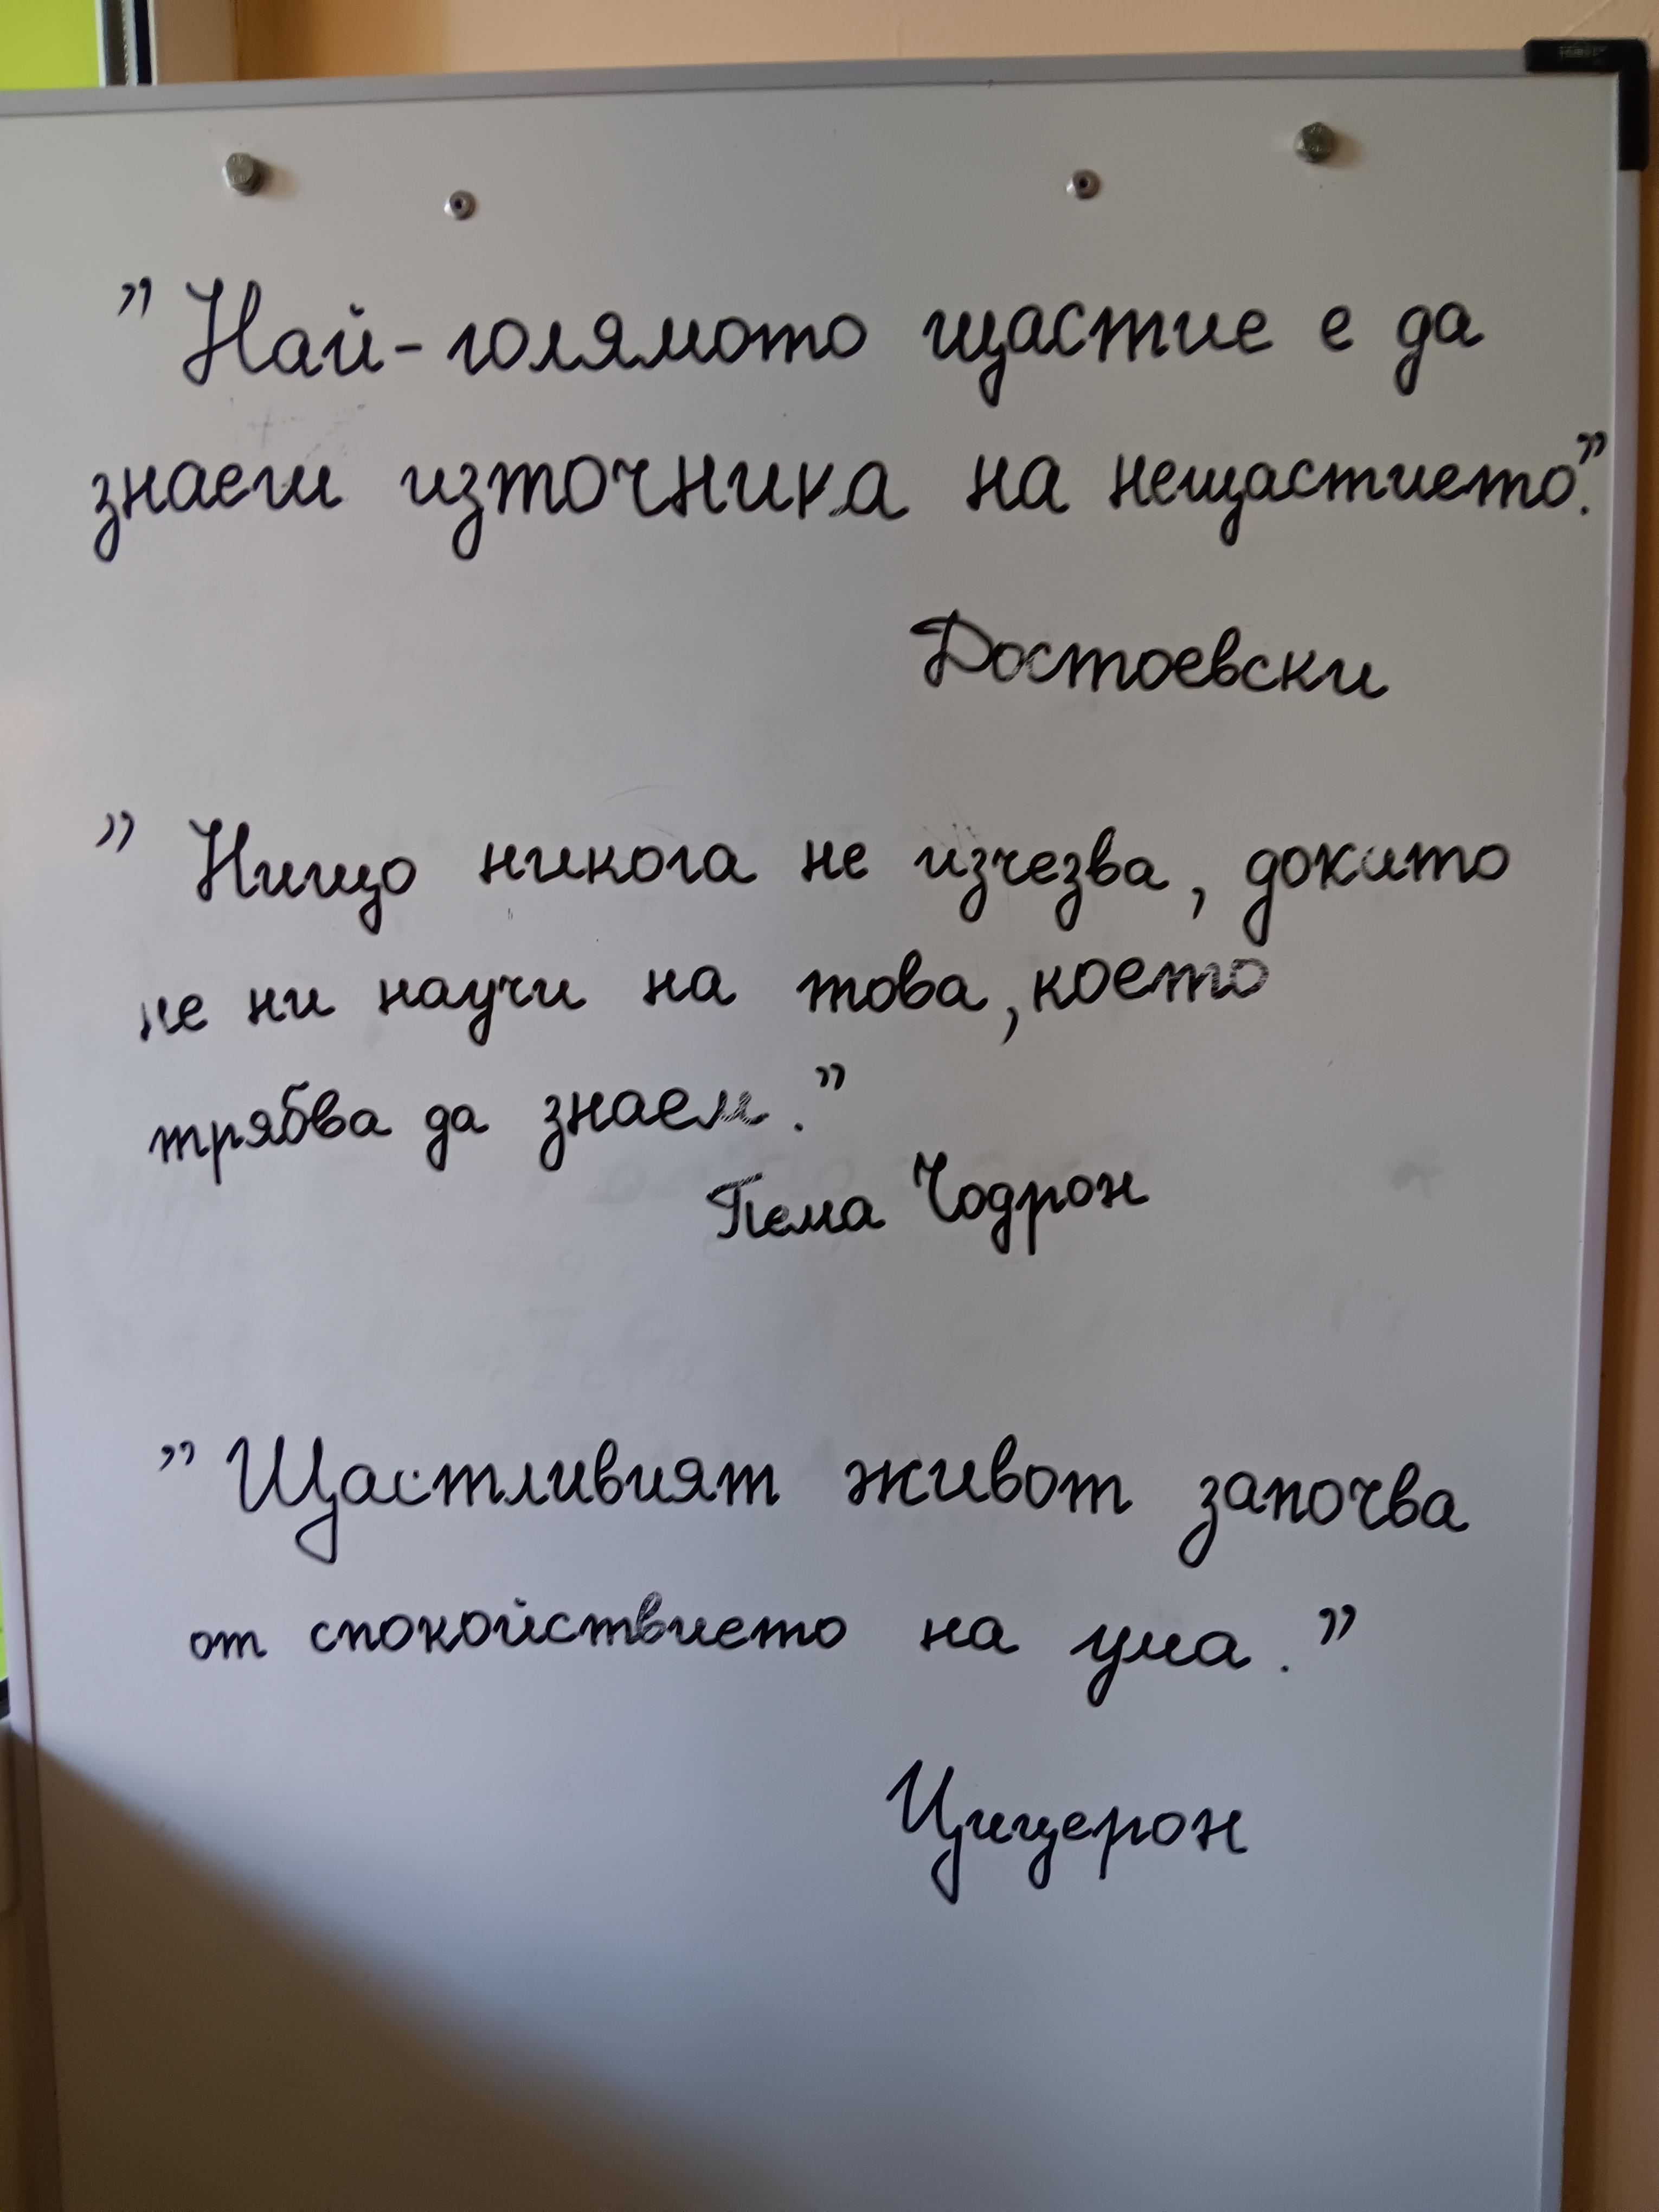 ” Най-голямото щастие е да
знаеш източника на нещастието.”
Достоевски
” Нищо никога не изчезва, докато
не ни научи на това, което
трябва да знаем.”
Пема Чодрон
” Щастливият живот започва
от спокойствието на ума.”
Цицерон